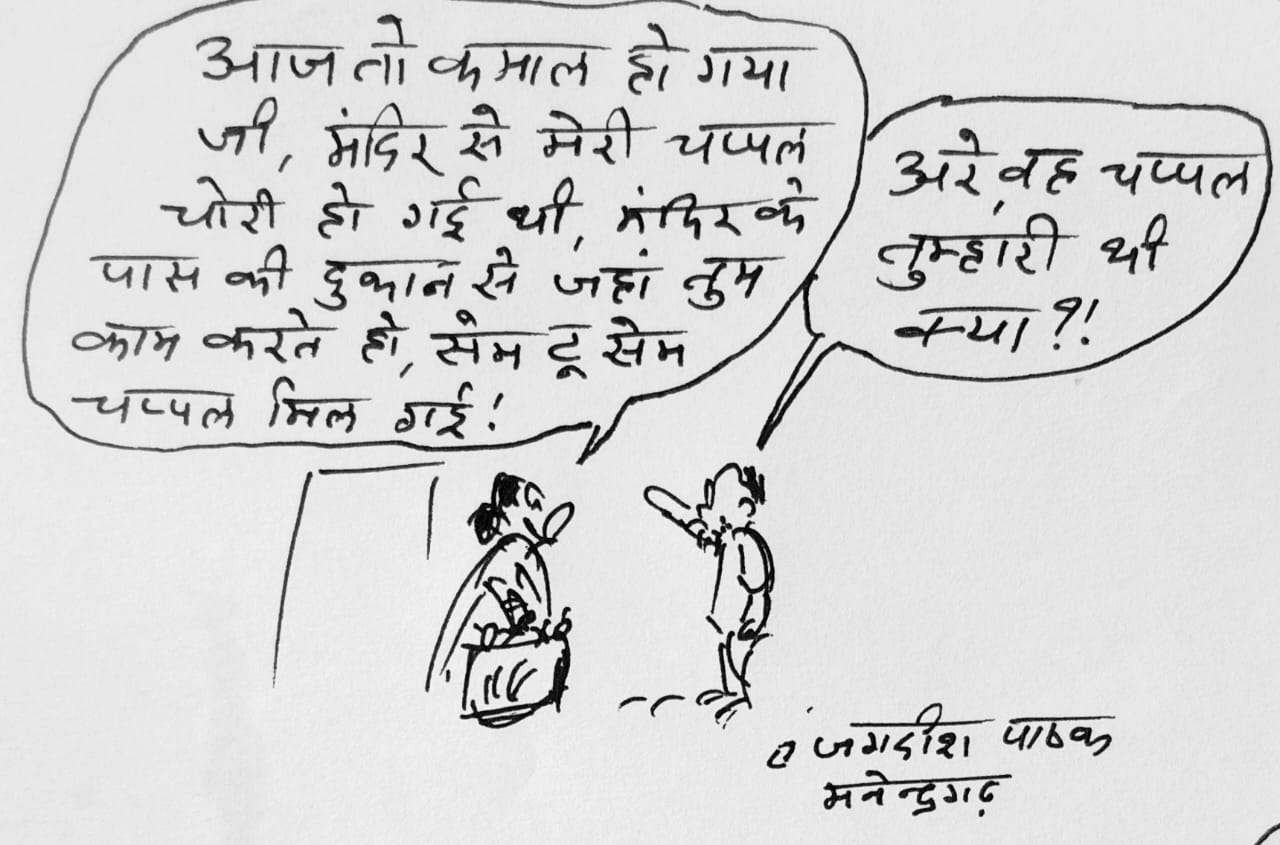 आज तो कमाल हो गया
जी, मंदिर से मेरी चप्पल
चोरी हो गई थी, मंदिर के
पास की दुकान से जहां तुम
काम करते हो, सेम टू सेम
चप्पल मिल गई!
अरे, वह चप्पल
तुम्हारी थी
क्या?!
जगदीश पाठक
मनेन्द्रगढ़